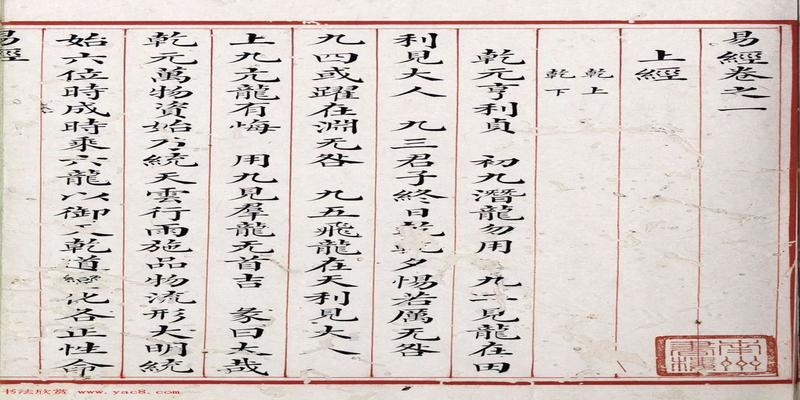 易經卷之一
上經
乾上
乾下
乾元亨利貞 初九潛龍勿用 九二見龍在田
利見大人 九三君子終日乾乾夕惕若厲无咎
九四或躍在淵无咎 九五飛龍在天利見大人
上九亢龍有悔 用九見羣龍无首吉 彖曰大哉
乾元萬物資始乃統天雲行雨施品物流形大明統
始六位時成時乘六龍以御天乾道變化各正性命
易經
南州書樓
书法欣赏 www.yac8.com